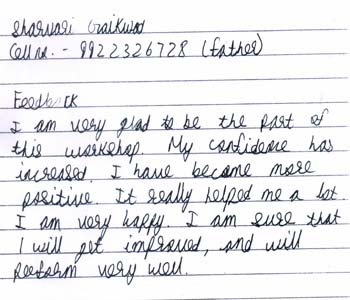 Sharvari Gaikwad
Cell no. - 9922326728 (father)
Feedback
I am very glad to be the part of
this workshop. My confidence has
increased. I have become more
positive. It really helped me a lot.
I am very happy. I am sure that
I will get improved, and will
perform very well.